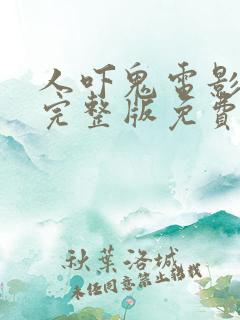 人吓鬼电影
完整版免费
秋叶洛城
未经同意禁止转载